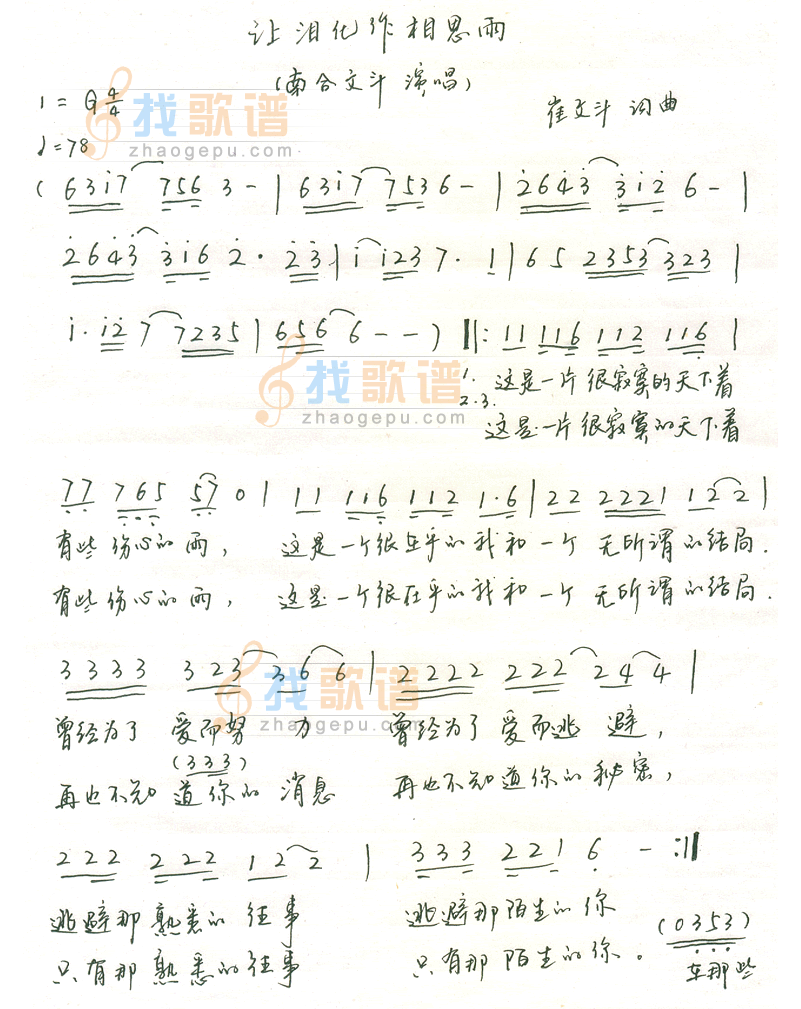 让泪化作相思雨
(南合文斗 演唱)
1=G 4/4
崔文斗 词曲
♩=78
找歌谱
zhaogepu.com
( 63i7 756 3 - | 63i7 7536 - | 2643 312 6 - |
2643 316 2· 23 | i i237· 1 | 65 2353 323 |
i· i2 7 7235 | 656 6 - - ) ‖: 11 116 112 116 |
找歌谱
zhaogepu.com
1. 这是一片很寂寞的天下着
2.3. 这是一片很寂寞的天下着
77 765 57 0 | 11 116 112 1·6 | 22 2221 12 2 |
有些伤心的雨, 这是一个很在乎的我和一个 无所谓的结局.
有些伤心的雨, 这是一个很在乎的我和一个 无所谓的结局.
3333 323 36 6 | 2222 222 24 4 |
找歌谱
zhaogepu.com
曾经为了 爱而努 力 曾经为了 爱而逃 避,
(333)
再也不知 道你的 消息 再也不知道你的秘密,
222 222 12 2 | 333 221 6 - :‖
逃避那 熟悉的 往事 逃避那陌生的你
只有那 熟悉的往事 只有那 陌生的你。 (0353)
在那些